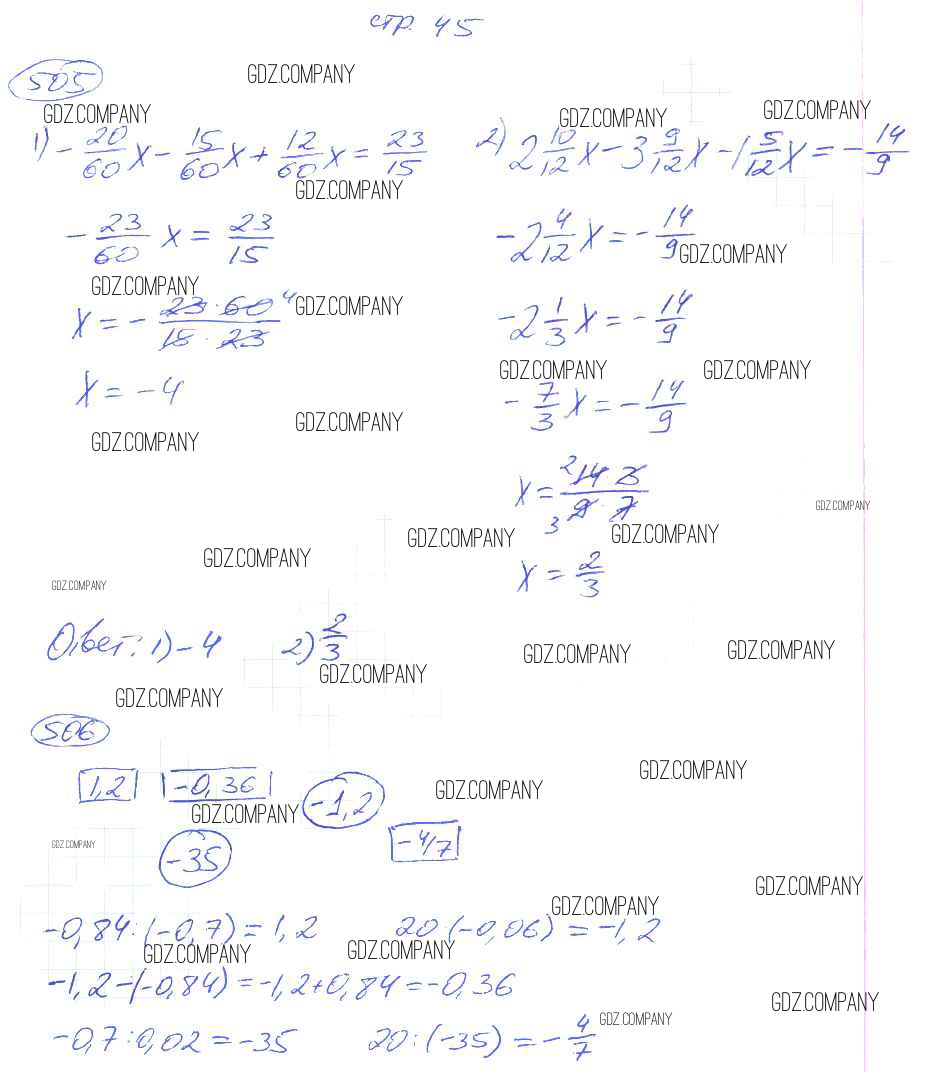 стр. 45
505
GDZ.COMPANY
GDZ.COMPANY GDZ.COMPANY GDZ.COMPANY
1) -20/60 x - 15/60 x + 12/60 x = 23/15 2) 2 10/12 x - 3 9/12 x - 1 5/12 x = -14/9
GDZ.COMPANY
-23/60 x = 23/15 -2 4/12 x = -14/9
GDZ.COMPANY
GDZ.COMPANY GDZ.COMPANY
x = - 23·60 4/15·23 -2 1/3 x = -14/9
GDZ.COMPANY GDZ.COMPANY
x = -4 -7/3 x = -14/9
GDZ.COMPANY GDZ.COMPANY
x = 2 14·3/3 9·7
GDZ.COMPANY
GDZ.COMPANY GDZ.COMPANY GDZ.COMPANY
GDZ.COMPANY
x = 2/3
Ответ: 1) -4 2) 2/3
GDZ.COMPANY GDZ.COMPANY GDZ.COMPANY
GDZ.COMPANY
506
GDZ.COMPANY
1,2 -0,36 -1,2
GDZ.COMPANY GDZ.COMPANY
-35 -4/7
GDZ.COMPANY
GDZ.COMPANY
GDZ.COMPANY
-0,84:(-0,7) = 1,2 20·(-0,06) = -1,2
GDZ.COMPANY GDZ.COMPANY
-1,2-(-0,84) = -1,2+0,84 = -0,36
GDZ.COMPANY
GDZ.COMPANY
-0,7:0,02 = -35 20:(-35) = -4/7